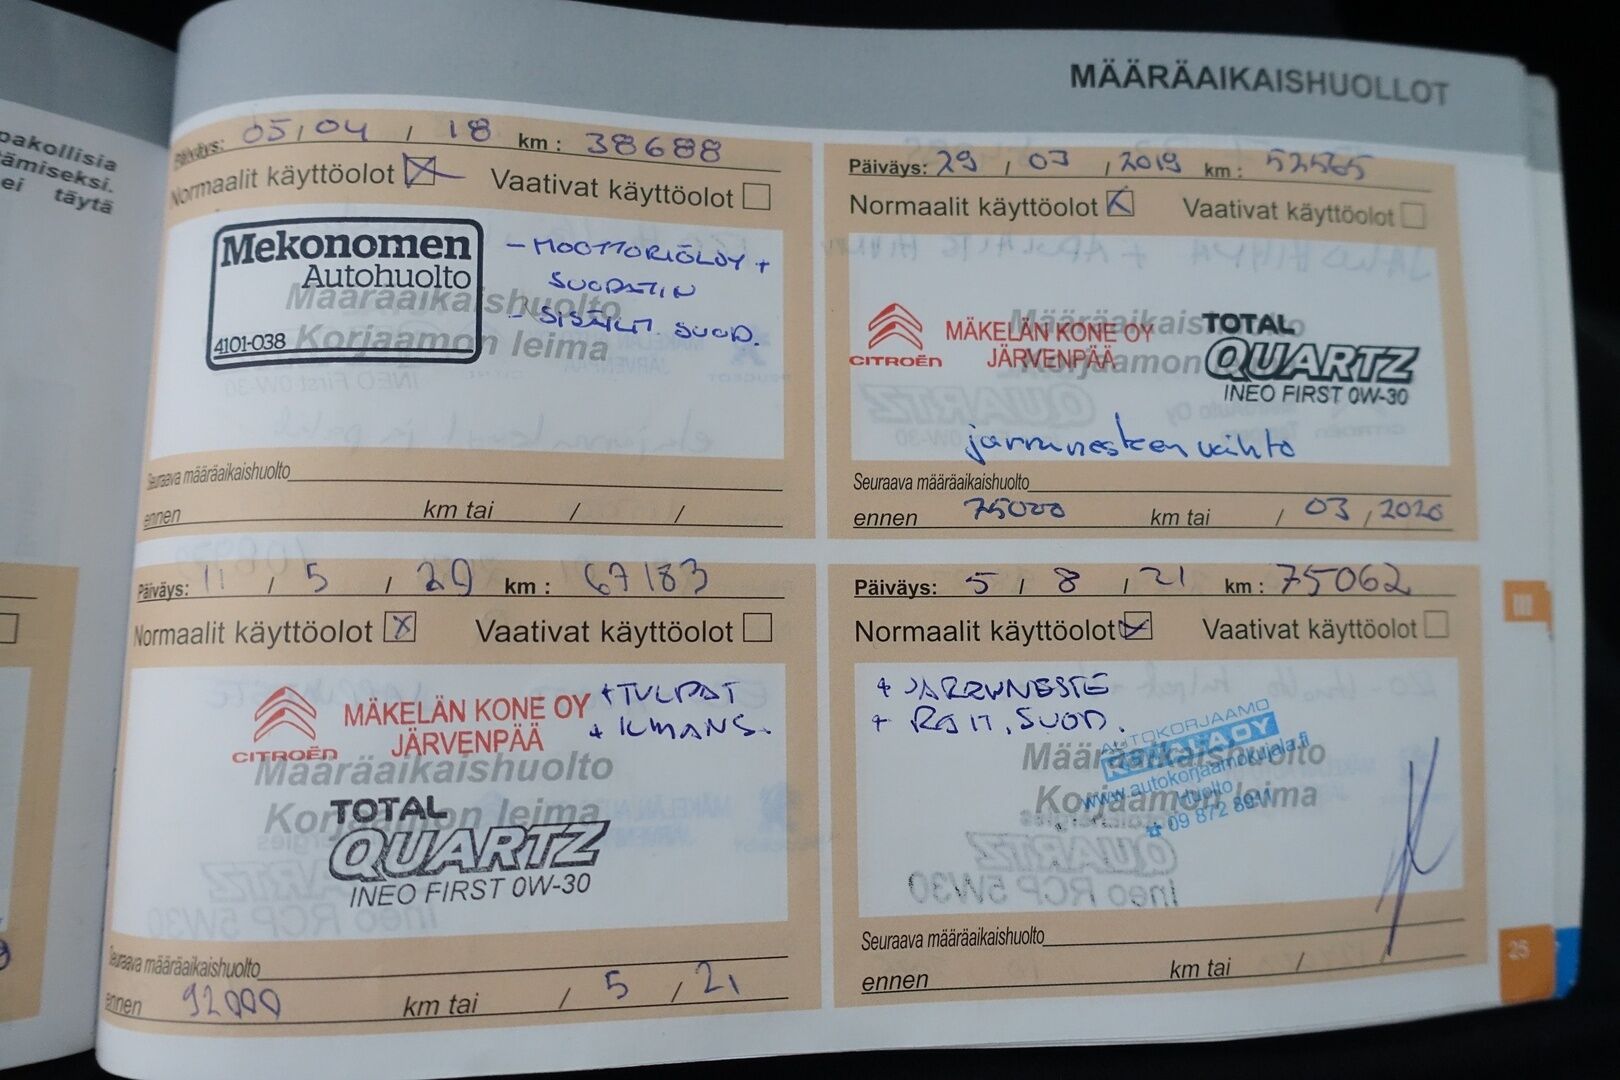 pakollisia
ämiseksi.
ei täytä
MÄÄRÄAIKAISHUOLLOT
Päiväys: 05 / 04 / 18 km : 38688
Normaalit käyttöolot Vaativat käyttöolot
Mekonomen
Autohuolto
4101-038
- MOOTTORIÖLJY +
SUODATIN
- SISÄILM. SUOD.
Määräaikaishuolto
Korjaamon leima
Seuraava määräaikaishuolto
ennen km tai / /
Päiväys: 29 / 03 / 2019 km : 52565
Normaalit käyttöolot Vaativat käyttöolot
CITROËN
MÄKELÄN KONE OY
JÄRVENPÄÄ
Määräaikais
Korjaamon
TOTAL
QUARTZ
INEO FIRST 0W-30
jarrunesteen vaihto
Seuraava määräaikaishuolto
ennen 75000 km tai / 03 / 2020
Päiväys: 11 / 5 / 20 km : 67183
Normaalit käyttöolot Vaativat käyttöolot
CITROËN
MÄKELÄN KONE OY
JÄRVENPÄÄ
+ TULPAT
+ ILMANS.
Määräaikaishuolto
Korjaamon leima
TOTAL
QUARTZ
INEO FIRST 0W-30
Seuraava määräaikaishuolto
ennen 92000 km tai / 5 / 21
Päiväys: 5 / 8 / 21 km : 75062
Normaalit käyttöolot Vaativat käyttöolot
+ JARRUNESTE
+ RAIT. SUOD.
AUTOKORJAAMO
www.autokorjaamokujala.fi
Huolto
Määräaikaishuolto
Korjaamon leima
Seuraava määräaikaishuolto
ennen km tai / /
25